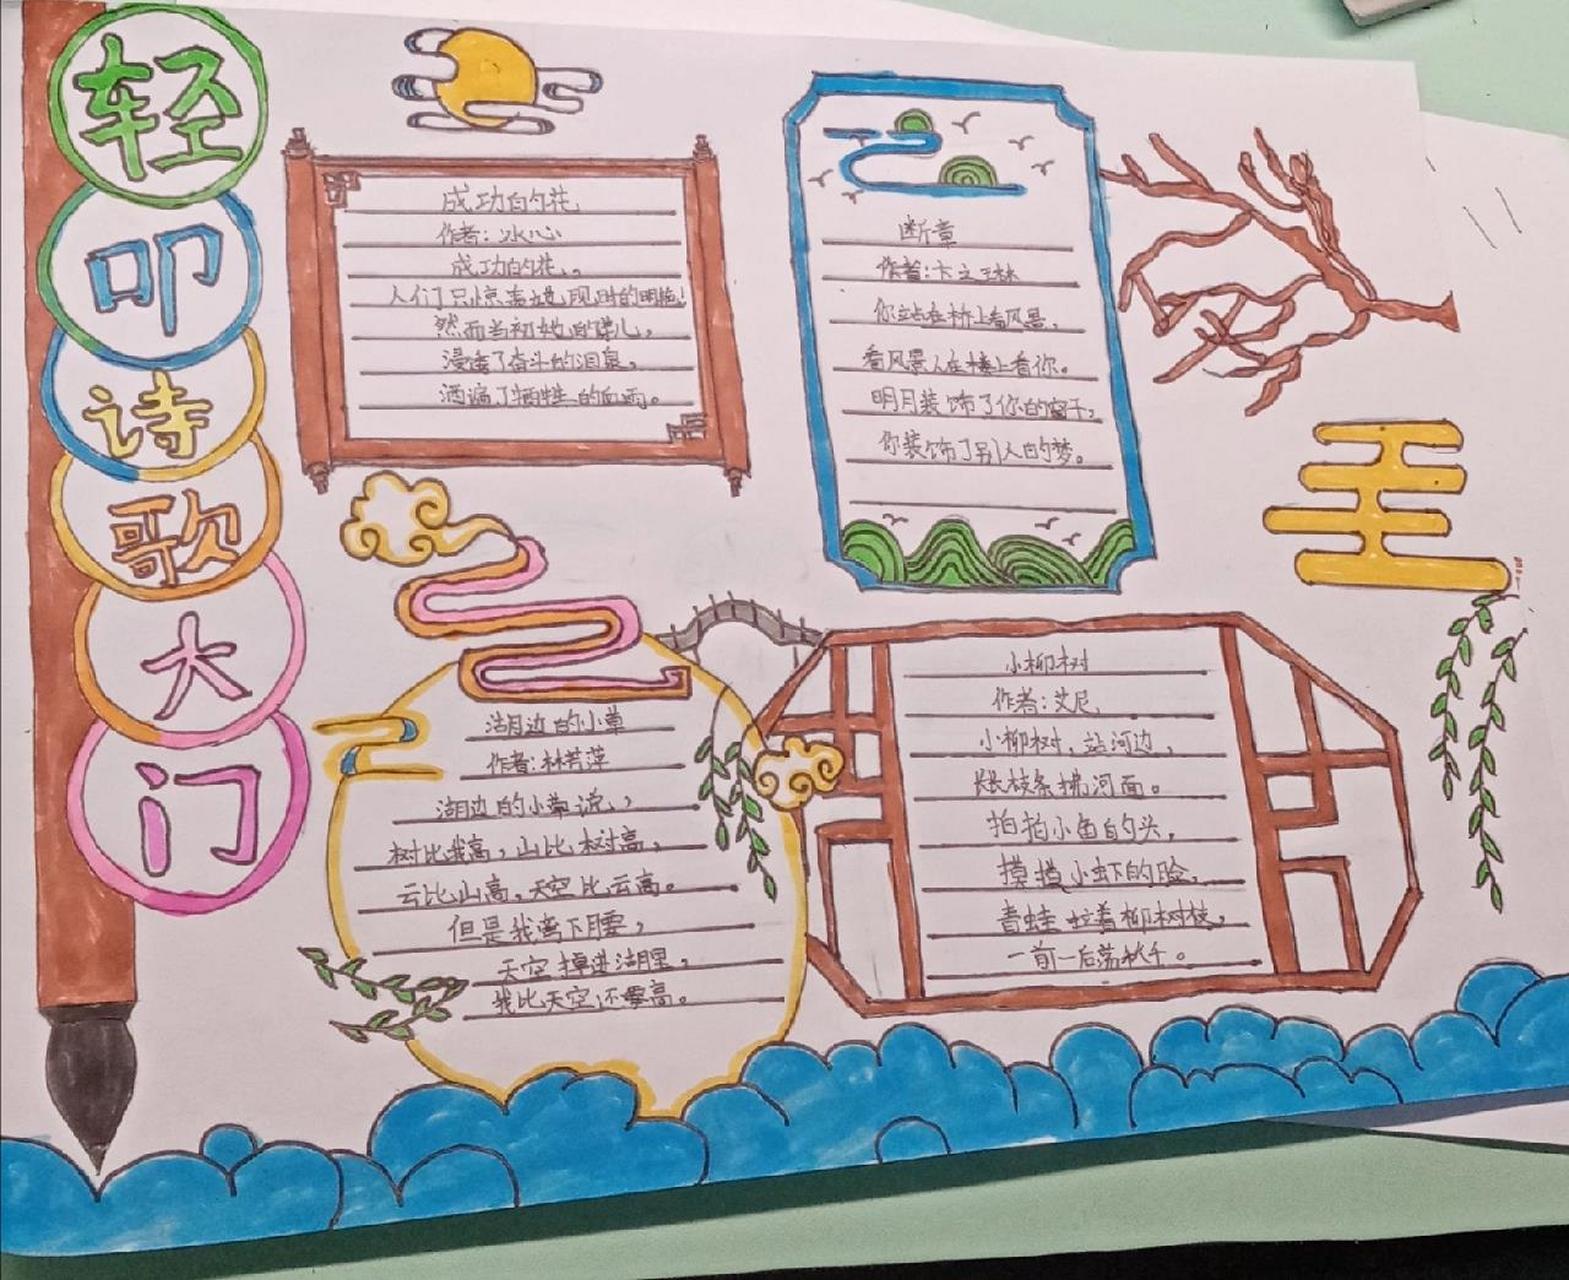 轻叩诗歌大门
成功的花
作者：冰心
成功的花、
人们只惊羡她现时的明艳！
然而当初她的芽儿，
浸透了奋斗的泪泉，
洒遍了牺牲的血雨。
断章
作者：卞之琳
你站在桥上看风景，
看风景人在楼上看你。
明月装饰了你的窗子，
你装饰了别人的梦。
湖边的小草
作者：林芳萍
湖边的小草说，
树比我高，山比树高，
云比山高，天空比云高。
但是我弯下腰，
天空掉进湖里，
我比天空还要高。
小柳树
作者：艾尼
小柳树，站河边，
长长枝条拂河面。
拍拍小鱼的头，
摸摸小虾的脸，
青蛙拉着柳树枝，
一前一后荡秋千。